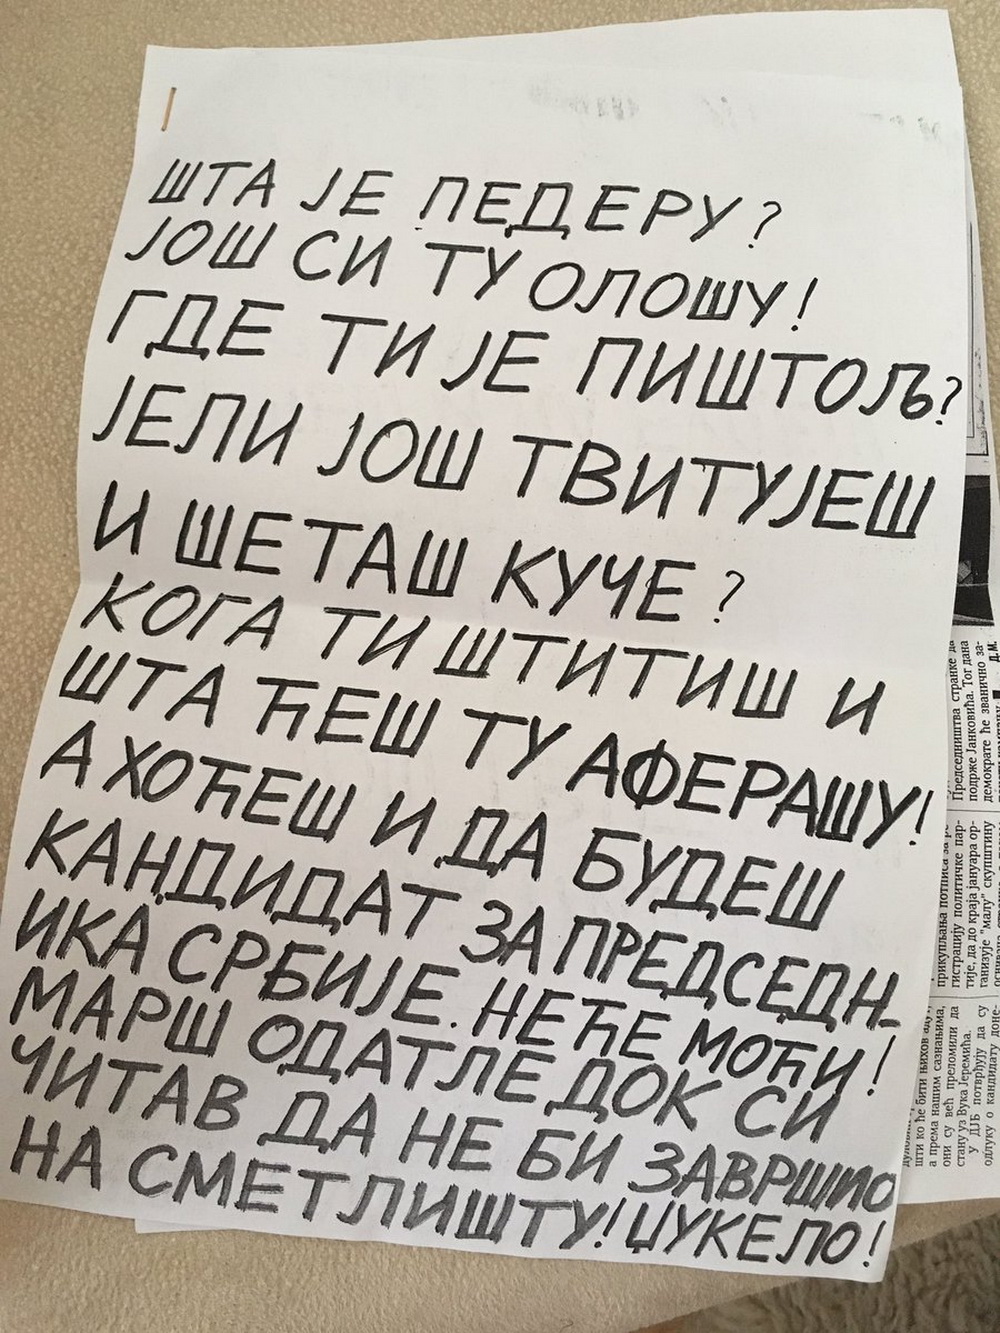 ШТА ЈЕ ПЕДЕРУ?
ЈОШ СИ ТУ ОЛОШУ!
ГДЕ ТИ ЈЕ ПИШТОЉ?
ЈЕЛИ ЈОШ ТВИТУЈЕШ
И ШЕТАШ КУЧЕ?
КОГА ТИ ШТИТИШ И
ШТА ЋЕШ ТУ АФЕРАШУ!
А ХОЋЕШ И ДА БУДЕШ
КАНДИДАТ ЗА ПРЕДСЕДН-
ИКА СРБИЈЕ. НЕЋЕ МОЋИ!
МАРШ ОДАТЛЕ ДОК СИ
ЧИТАВ ДА НЕ БИ ЗАВРШИО
НА СМЕТЛИШТУ! ЏУКЕЛО!
Председништва странке да
подрже Јанковића. Тог дана
демократе ће званично за-
Д. М.
прикупљања потписа за
гистрацију политичке пар-
тије, да до краја јануара ор-
ганизује "малу" скупштину
шти ко ће бити њихов адут,
а према нашим сазнањима,
они су већ преломили да
стану уз Вука Јеремића.
У ДЈБ потврђују да су
одлуку о кандидату доне-